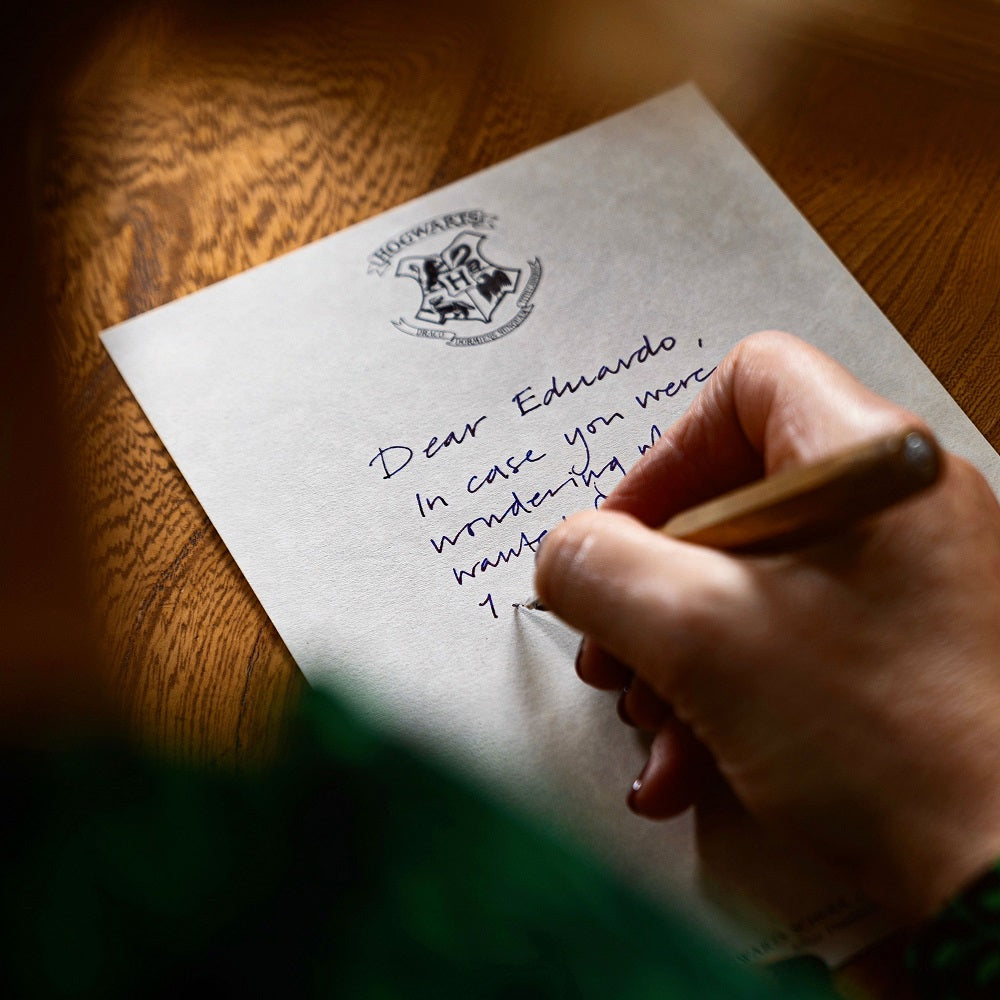 HOGWARTS
H
DRACO DORMIENS NUNQUAM TITILLANDUS
Dear Eduardo,
In case you were
wondering